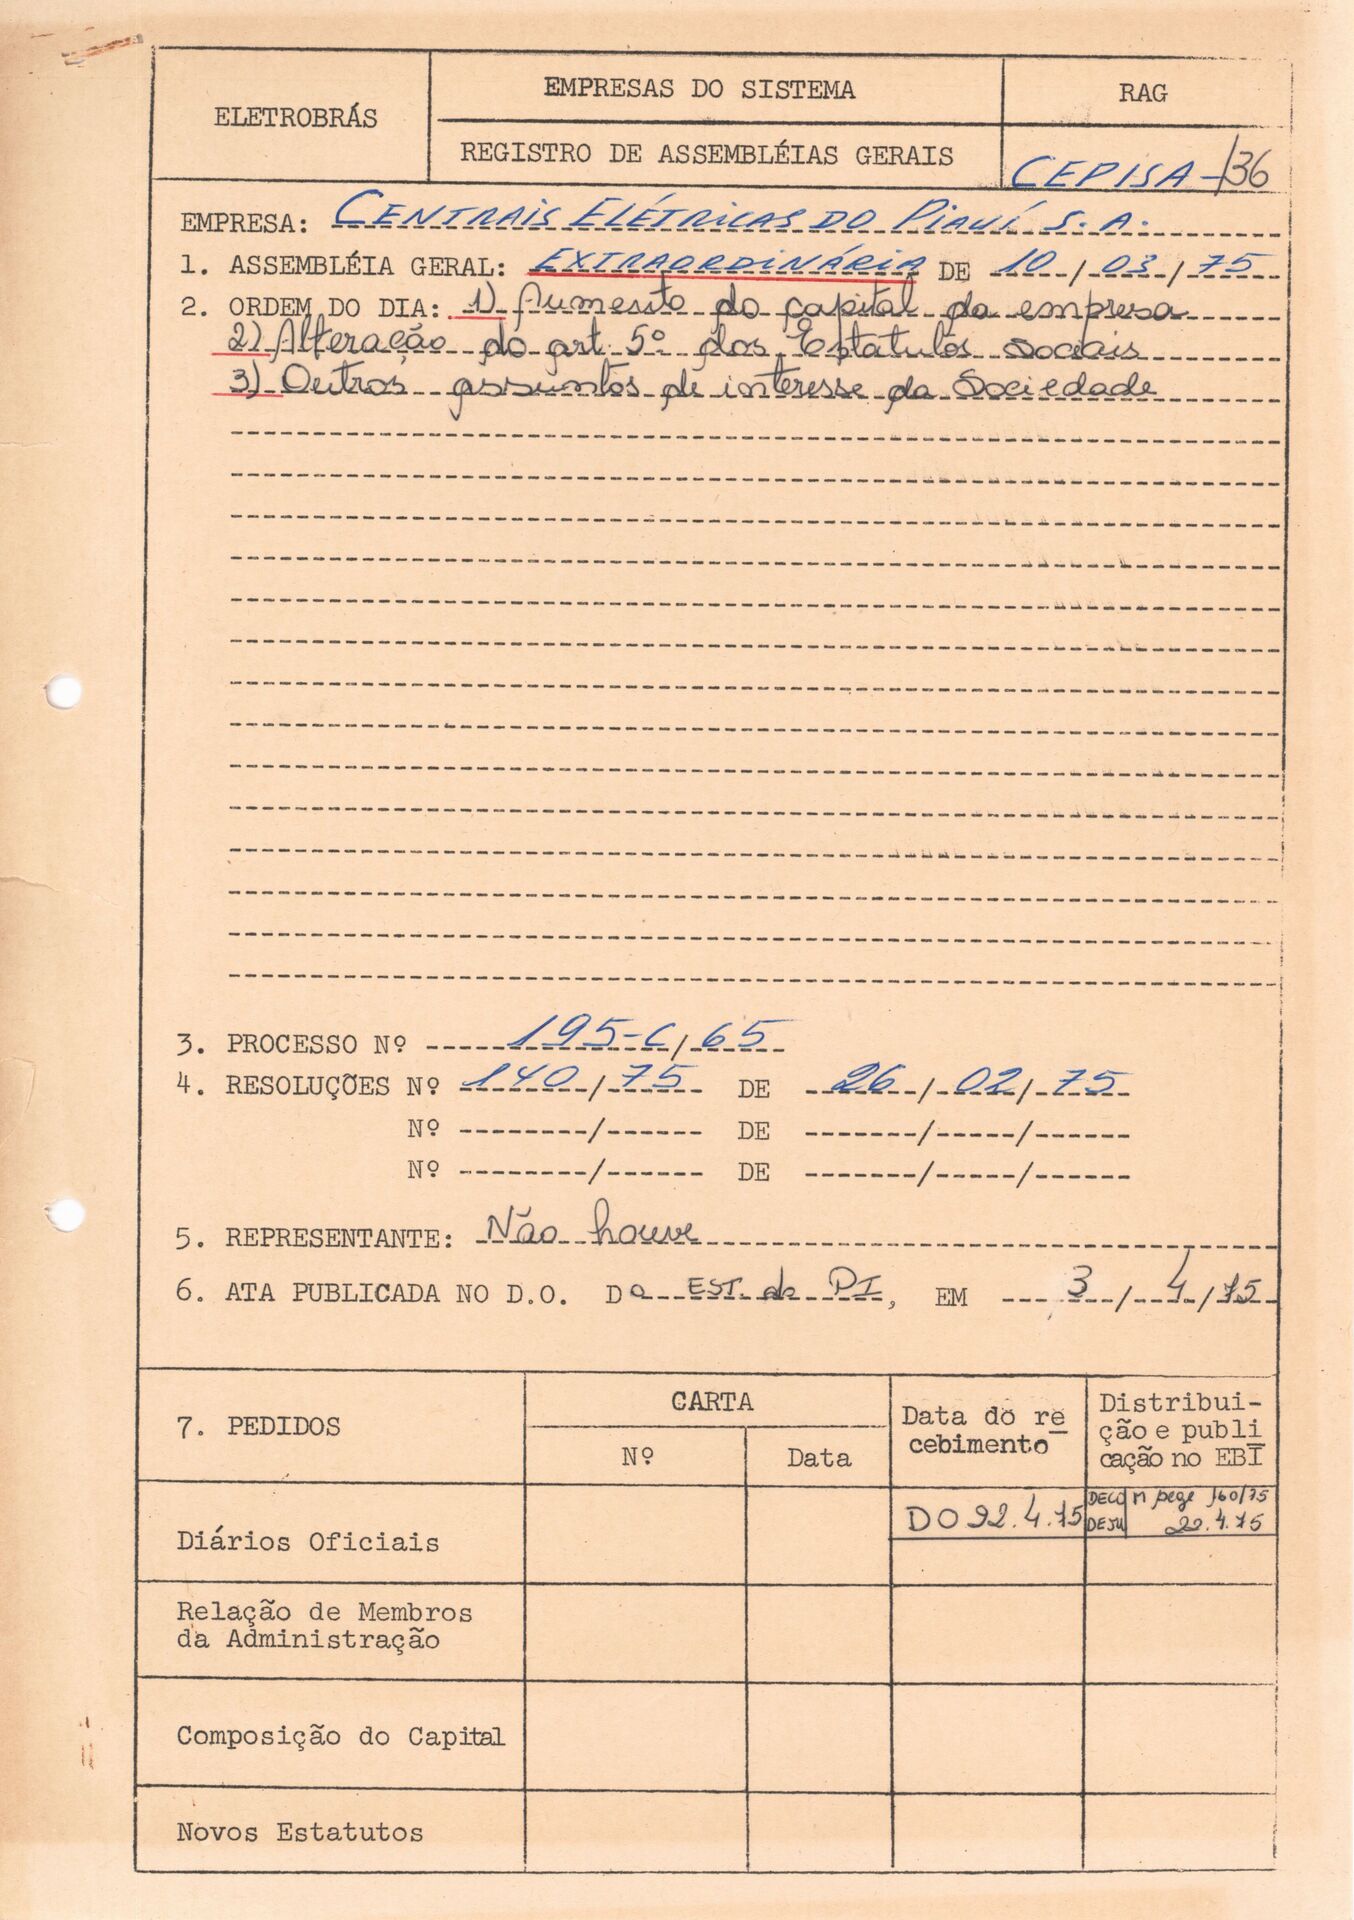 ELETROBRÁS
EMPRESAS DO SISTEMA
RAG
REGISTRO DE ASSEMBLÉIAS GERAIS
CEPISA-/36
EMPRESA: CENTRAIS ELÉTRICAS DO PIAUÍ S.A.
1. ASSEMBLÉIA GERAL: EXTRAORDINÁRIA DE 10/03/75
2. ORDEM DO DIA: 1) Aumento do capital da empresa
2) Alteração do art. 5º dos Estatutos Sociais
3) Outros assuntos de interesse da Sociedade
3. PROCESSO Nº 195-C/65
4. RESOLUÇÕES Nº 140/75 DE 26/02/75
Nº / DE / /
Nº / DE / /
5. REPRESENTANTE: Não houve
6. ATA PUBLICADA NO D.O. Do EST. do PI, EM 3/4/75
7. PEDIDOS
CARTA
Nº
Data
Data do re
cebimento
Distribui-
ção e publi
cação no EBI
Diários Oficiais
DO 22.4.75
DECO M 160/75
DEJU 22.4.75
Relação de Membros
da Administração
Composição do Capital
Novos Estatutos